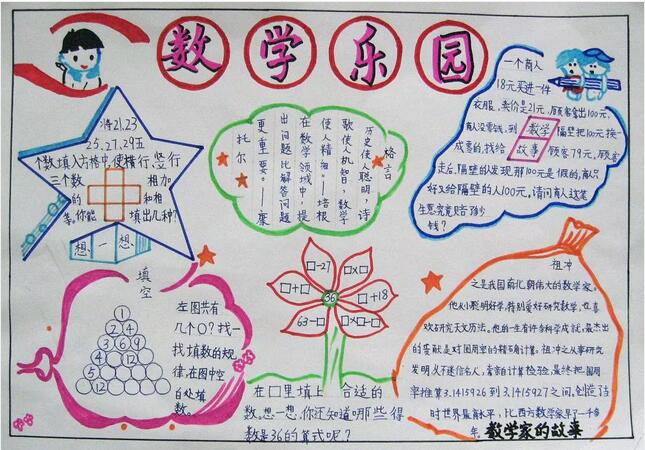 数学乐园
将21,23
25,27,29五
个数填入方格中,使横行、竖行
三个数 相加
的 和相
等。你能 填出几种?
想一想
格言
历史使人聪明,诗
歌使人机智,数学
使人精细。——培根
在数学领域中,提
出问题比解答问题
更重要。——康
托尔
一个商人
18元买进一件
衣服,卖价是21元,顾客拿出100元,
商人没零钱,到 隔壁把100元换
成零的,找给 顾客79元,顾客
数学
故事
走后,隔壁的发现,那100元是假的,商人只
好又给隔壁的人100元。请问商人这笔
生意究竟赔多少
钱?
填空
1
2 4
3 6 9
4 12
5 12
12
在图共有
几个○?找一
找填数的规
律,在图中空
白处填
数。
□-27
□×□
□+□
36
□+18
63-□
□×□-□
在□里填上 合适的
数。想一想,你还知道哪些得
数是36的算式呢?
祖冲
之是我国南北朝伟大的数学家。
他从小聪明好学,特别爱好研究数学,也喜
欢研究天文历法。他的一生有许多科学成就,最杰出
的贡献是对圆周率的精确计算。祖冲之从事研究
发明从不迷信名人,
最终把圆周
率推算3.1415926到3.1415927之间。创造
时世界最高水平,比西方数学家早了一千多
年。
数学家的故事